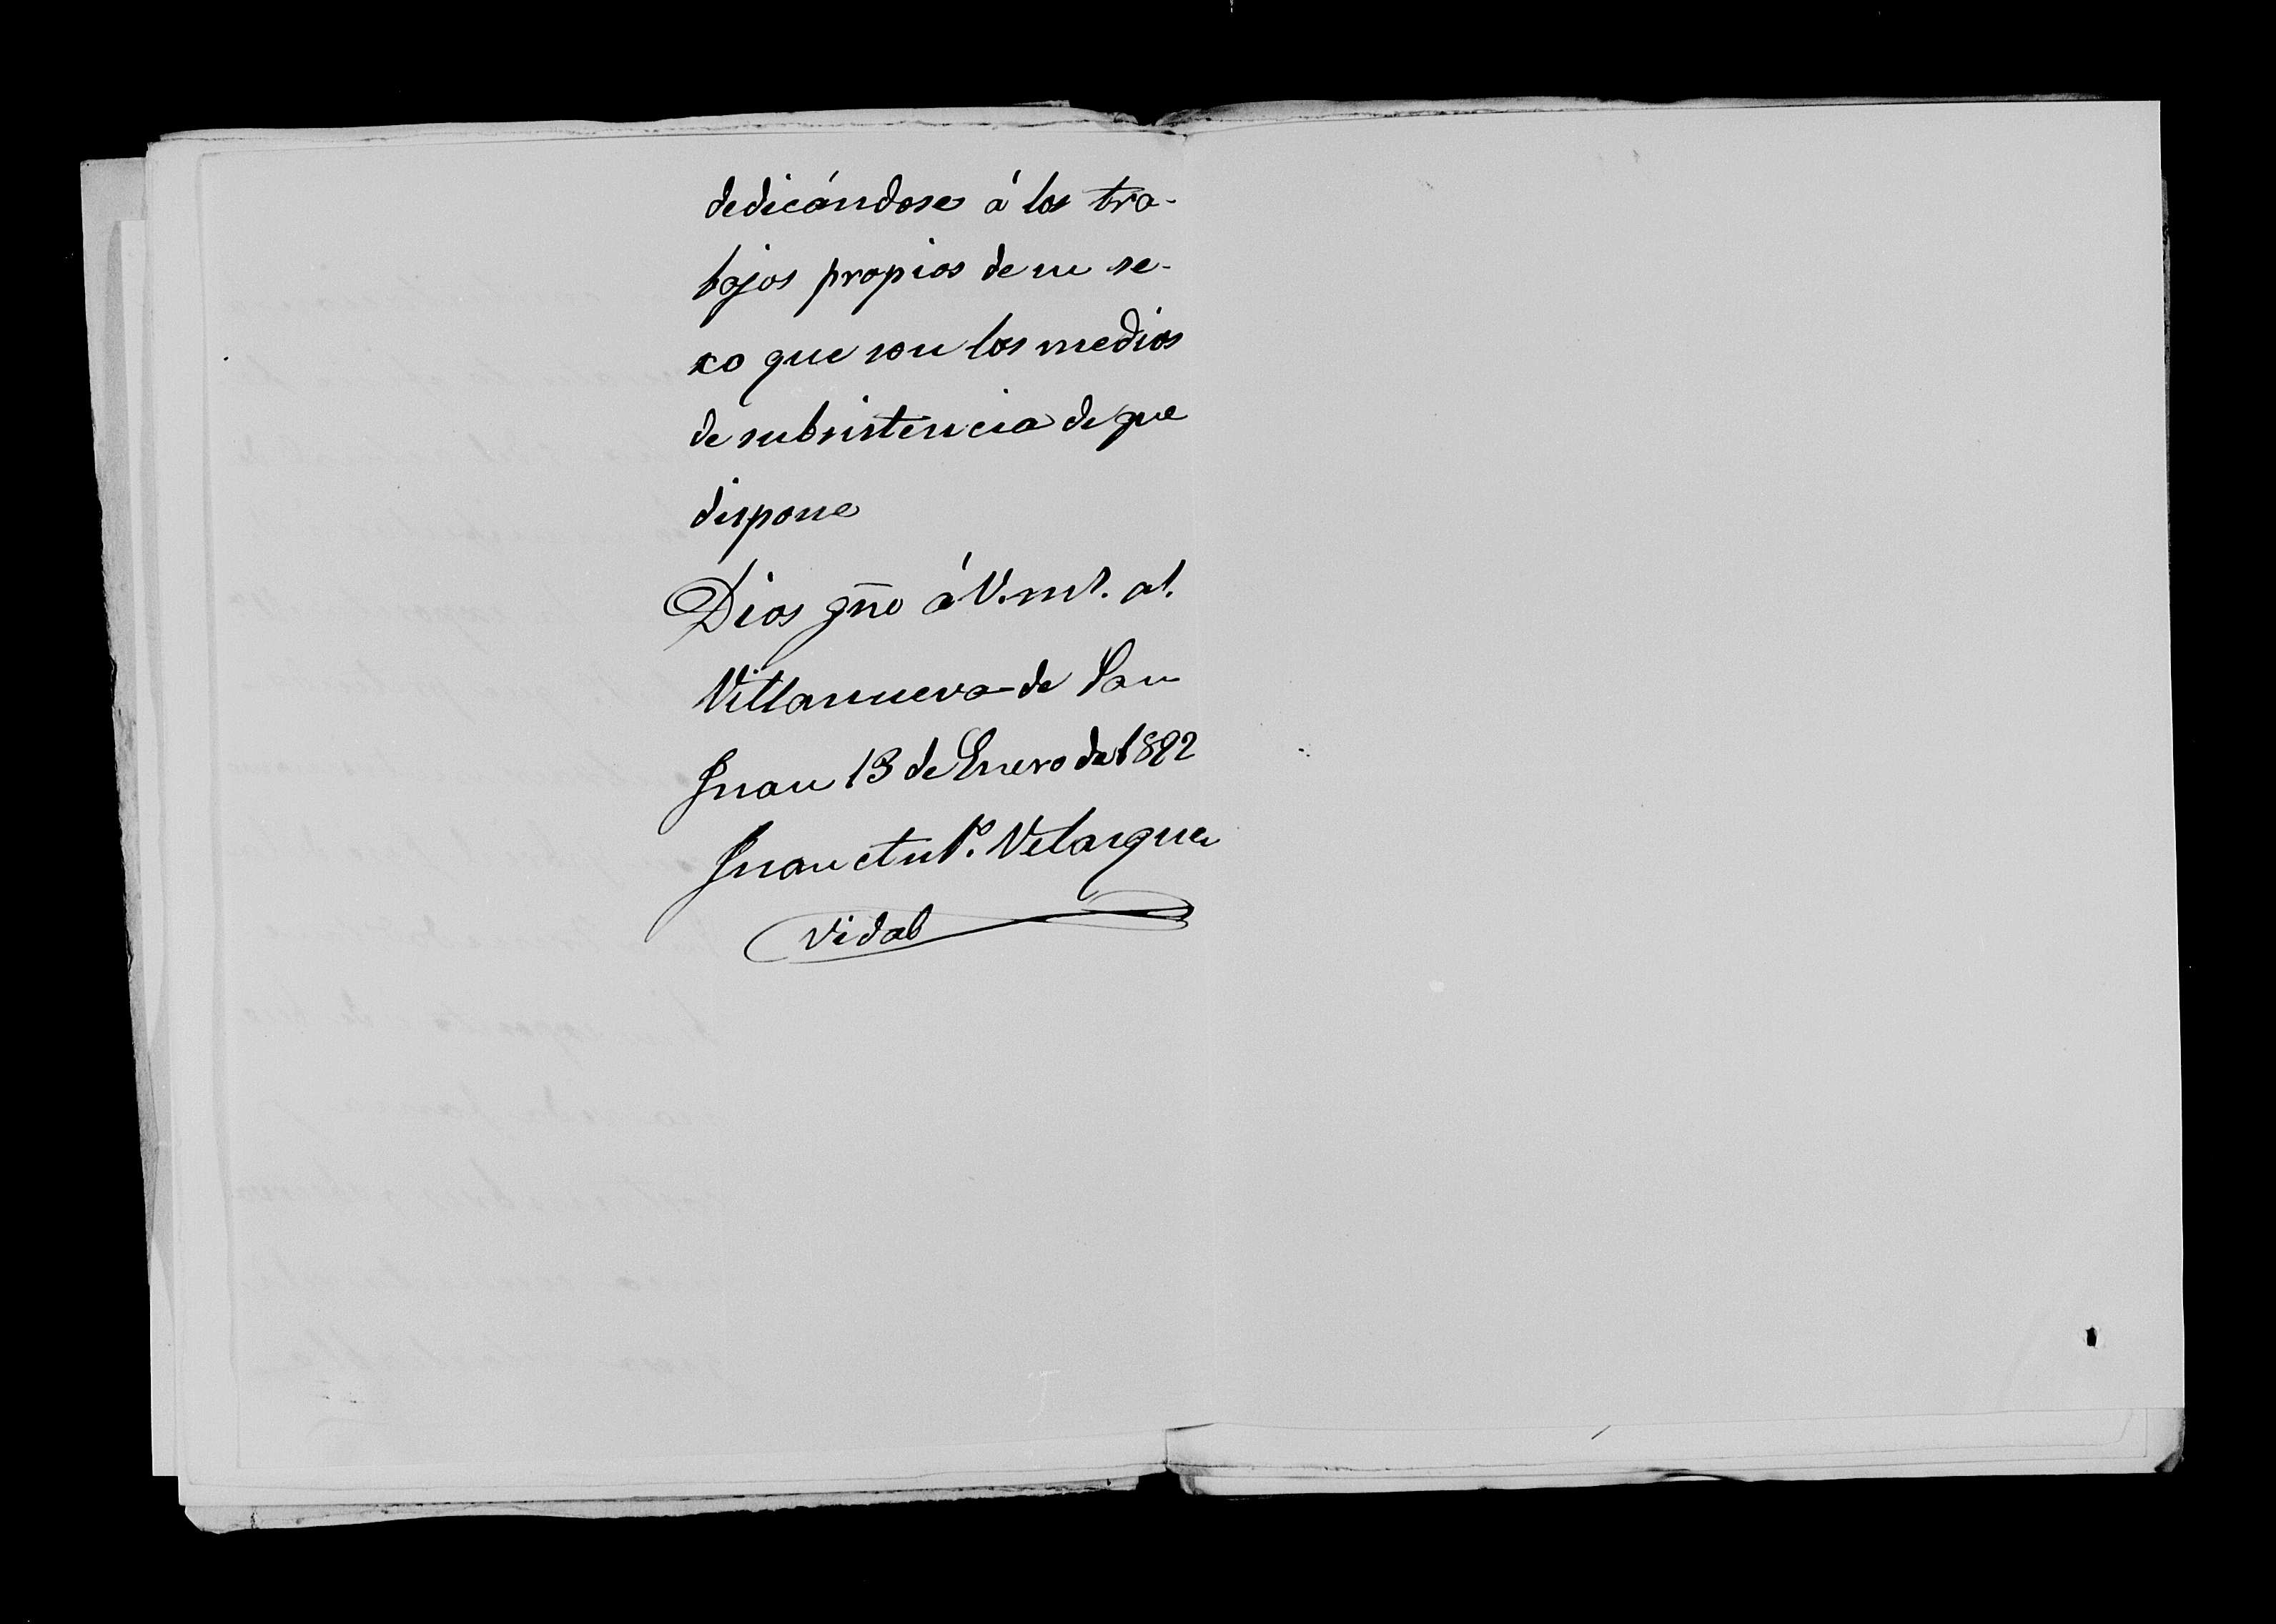 dedicándose á los tra-
bajos propios de su se-
xo que son los medios
de subsistencia de que
dispone
Dios gue á V. ms. as.
Villanueva de San
Juan 13 de Enero de 1892
Juan Antº. Velazquez
Vidal